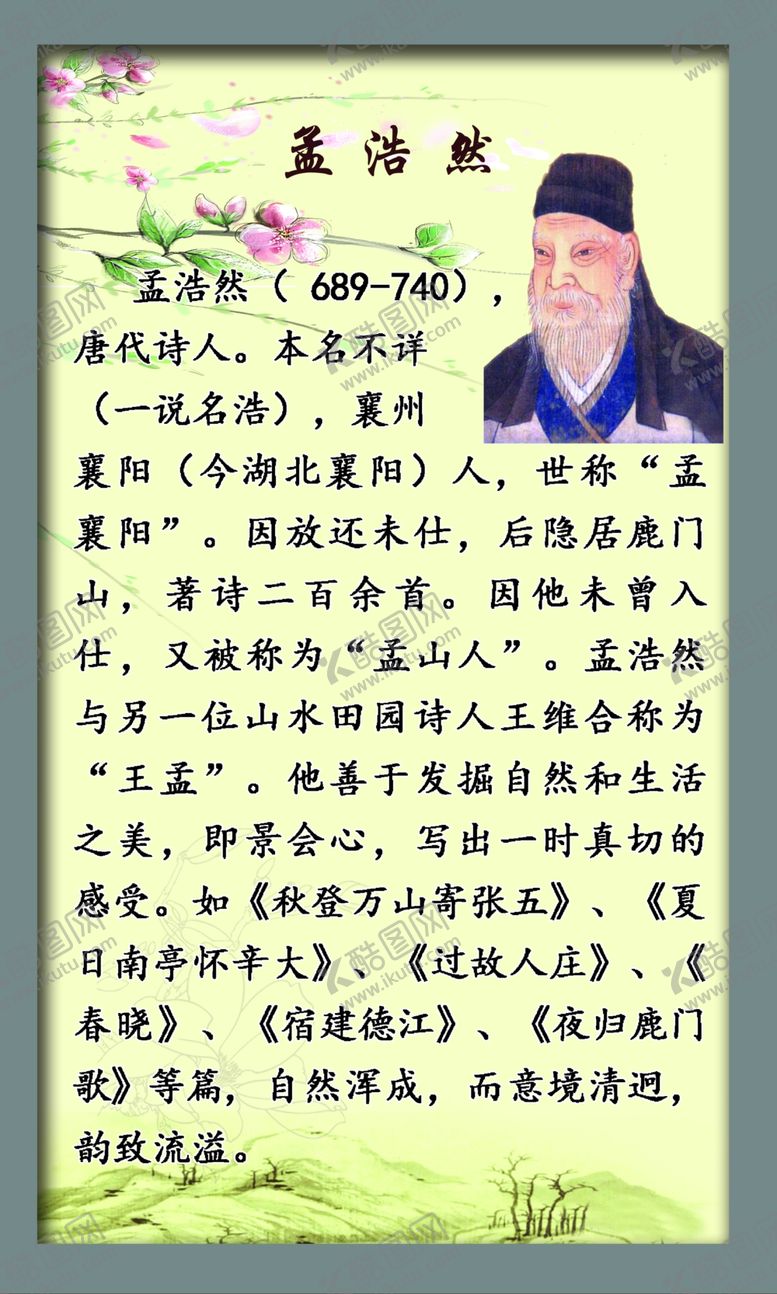 孟浩然
孟浩然（ 689-740），
唐代诗人。本名不详
（一说名浩），襄州
襄阳（今湖北襄阳）人，世称“孟
襄阳”。因放还未仕，后隐居鹿门
山，著诗二百余首。因他未曾入
仕，又被称为“孟山人”。孟浩然
与另一位山水田园诗人王维合称为
“王孟”。他善于发掘自然和生活
之美，即景会心，写出一时真切的
感受。如《秋登万山寄张五》、《夏
日南亭怀辛大》、《过故人庄》、《
春晓》、《宿建德江》、《夜归鹿门
歌》等篇，自然浑成，而意境清迥，
韵致流溢。
酷图网
www.ikutu.com